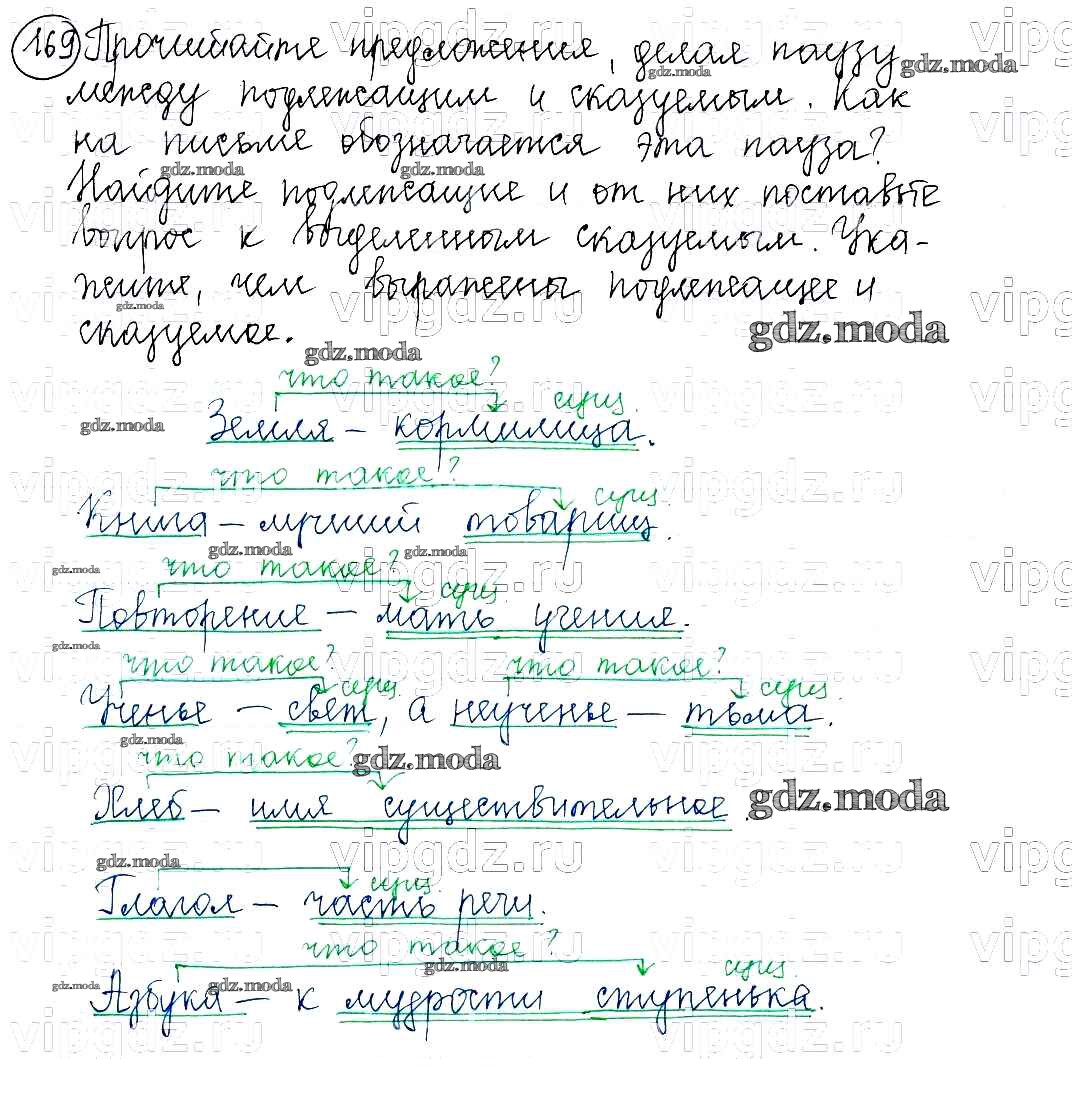 169 Прочитайте предложения, делая паузу
между подлежащим и сказуемым. Как
на письме обозначается эта пауза?
Найдите подлежащие и от них поставьте
вопрос к выделенным сказуемым. Ука-
жите, чем выражены подлежащее и
сказуемое.
что такое?
сущ.
Земля – кормилица.
что такое?
сущ.
Книга – лучший товарищ.
что такое?
сущ.
Повторение – мать учения.
что такое? что такое?
сущ. сущ.
Ученье – свет, а неученье – тьма.
что такое?
Хлеб – имя существительное.
сущ.
Глагол – часть речи.
что такое?
сущ.
Азбука – к мудрости ступенька.
gdz.moda
vipgdz.ru